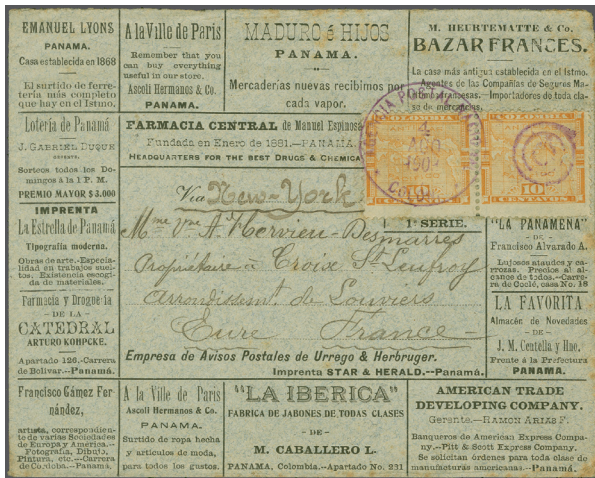 EMANUEL LYONS
PANAMA.
Casa establecida en 1868
El surtido de ferre-
tería más completo
que hay en el Istmo.
A la Ville de Paris
Remember that you
can buy everything
useful in our store.
Ascoli Hermanos & Co.
PANAMA.
MADURO é HIJOS
PANAMA.
Mercaderías nuevas recibimos por
cada vapor.
M. HEURTEMATTE & Co.
BAZAR FRANCES.
La casa más antigua establecida en el Istmo.
Agentes de las Compañías de Seguros Ma-
francesas.—Importadores de toda cla-
se de mercaderías.
Lotería de Panamá
J. GABRIEL DUQUE
GERENTE.
Sorteos todos los Do-
mingos á la 1 P. M.
PREMIO MAYOR $3.000
FARMACIA CENTRAL de Manuel Espinosa
Fundada en Enero de 1881.—PANAMA.
HEADQUARTERS FOR THE BEST DRUGS & CHEMICA
COLOMBIA
10
CENTAVOS
COLOMBIA
10
CENTAVOS
AGO
COLON
Via New-York
1ª SERIE.
IMPRENTA
La Estrella de Panamá
Tipografía moderna.
Obras de arte.-Especia-
lidad en trabajos suel-
tos. Existencia escogi-
da de materiales.
Mme Vve A. Hervieu-Desmarres
Propriétaire à Croix St Leufroy
Arrondissemt. de Louviers
Eure France
"LA PANAMEÑA"
—DE—
Francisco Alvarado A.
Lujosos ataudes y ca-
rrozas. Precios al al-
cance de todos.—Carre-
ra de Coclé, casa No. 18
Farmacia y Droguería
DE LA
CATEDRAL
ARTURO KOHPCKE.
Apartado 126.-Carrera
de Bolívar.—Panamá.
LA FAVORITA
Almacén de Novedades
—DE—
J. M. Centella y Hno,
Frente á la Prefectura
PANAMA.
Empresa de Avisos Postales de Urrego & Herbruger.
Imprenta STAR & HERALD.--Panamá.
Francisco Gámez Fer
nández,
artista, correspondien-
te de varias Sociedades
de Europa y América.—
Fotografía, Dibujo,
Pintura, etc.—Carrera
de Córdoba.—Panamá.
A la Ville de Paris
Ascoli Hermanos & Co.
PANAMA.
Surtido de ropa hecha
y artículos de moda,
para todos los gustos.
"LA IBERICA"
FABRICA DE JABONES DE TODAS CLASES
—DE—
M. CABALLERO L.
PANAMA, Colombia.—Apartado No. 231
AMERICAN TRADE
DEVELOPING COMPANY.
Gerente.—RAMON ARIAS F.
Banqueros de American Express Compa-
ny.—Pitt & Scott Express Company.
Se solicitan órdenes para toda clase de
manufacturas americanas.—Panamá.